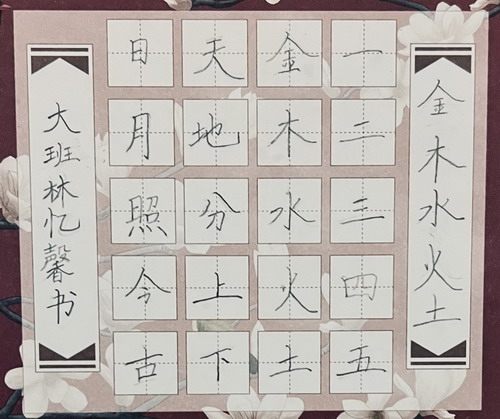 金木水火土
一二三四五
金木水火土
天地分上下
日月照今古
大班林忆馨书